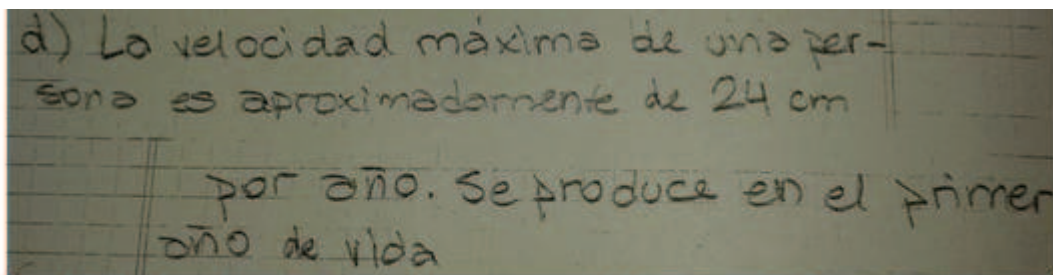 d) La velocidad máxima de una per-
sona es aproximadamente de 24 cm
por año. Se produce en el primer
año de vida